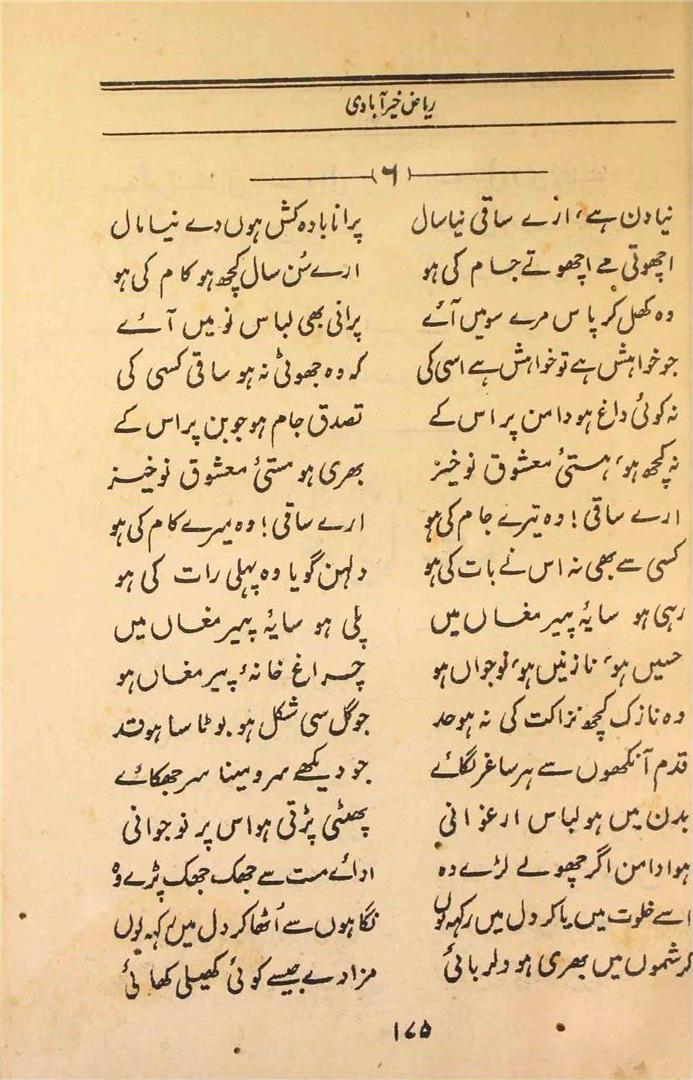 ریاض خیرآبادی
(۶)
نیا دن ہے، ارے ساقی نیا سال پرانا بادہ کش ہوں دے نیا مال
اچھوتی مے اچھوتے جام کی ہو ارے سُن سال کچھ ہو کام کی ہو
وہ کھل کر پاس مرے سو میں آئے پرانی بھی لباس نو میں آئے
جو خواہش ہے تو خواہش ہے اسی کی کہ وہ جھوٹی نہ ہو ساقی کسی کی
نہ کوئی داغ ہو دامن پر اس کے تصدق جام ہو جوبن پر اس کے
نہ کچھ ہو، ہستیٔ معشوق نوخیز بھری ہو مستیٔ معشوق نوخیز
ارے ساقی! وہ تیرے جام کی ہو ارے ساقی! وہ میرے کام کی ہو
کسی سے بھی نہ اس نے بات کی ہو دلہن گویا وہ پہلی رات کی ہو
رہی ہو سایۂ پیر مغاں میں پلی ہو سایۂ پیر مغاں میں
حسیں ہو، نازنیں ہو، نوجواں ہو چراغ خانۂ پیر مغاں ہو
وہ نازک کچھ نزاکت کی نہ ہو حد جو گل سی شکل ہو بوٹا سا ہو قد
قدم آنکھوں سے ہر ساغر لگائے جو دیکھے سرو مینا سر جھکائے
بدن میں ہو لباس ارغوانی پھٹی پڑتی ہو اس پر نوجوانی
ہوا دامن اگر چھولے لڑے وہ ادائے مست سے جھک جھک پڑے وہ
اسے خلوت میں پا کر دل میں رکھ لوں نگاہوں سے اُٹھا کر دل میں رکھ لوں
کرشموں میں بھری ہو دلربائی مزا دے جیسے کوئی کھیلی کھائی
۱۷۵